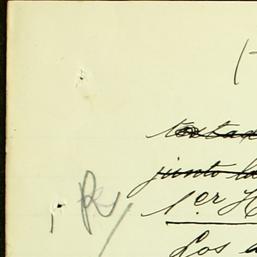 testad
junto la
R/ 1.er H
Los a